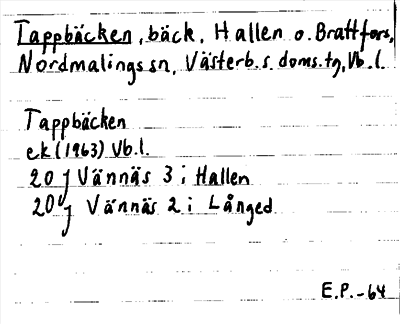 Tappbäcken, bäck, Hallen o. Brattfors,
Nordmalings sn, Västerb. s. doms. tg, Vb. l.
Tappbäcken
ek (1963) Vb. l.
20 J Vännäs 3 i Hallen
20 J Vännäs 2 i Långed
E.P. -64